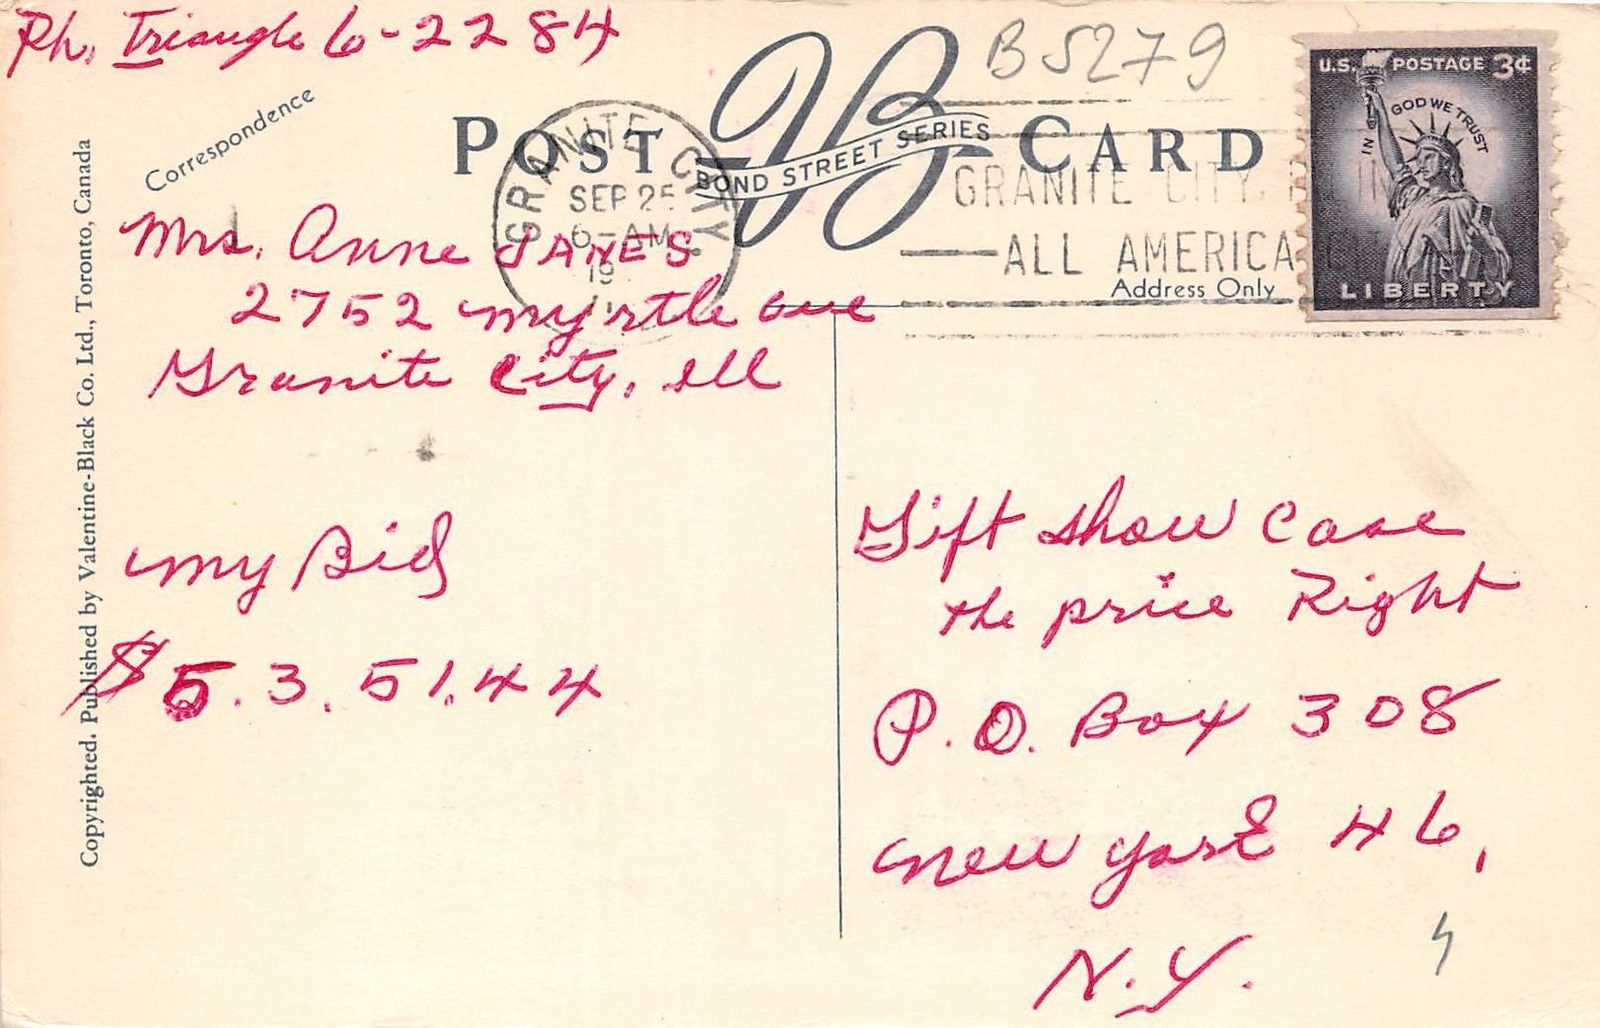 Ph. Triangle 6-2284
B5279
U.S. POSTAGE 3¢
IN GOD WE TRUST
LIBERTY
Correspondence
POST CARD
VB
BOND STREET SERIES
GRANITE CITY
SEP 25
6-AM
19
GRANITE CITY,
ALL AMERICA
Address Only
Mrs. Anne JANES
2752 myrtle ave
Granite City, Ill
my Bid
$5.3.51.44
Gift show Case
the price Right
P.O. Box 308
new york 46,
N.Y.
Copyrighted. Published by Valentine-Black Co. Ltd., Toronto, Canada